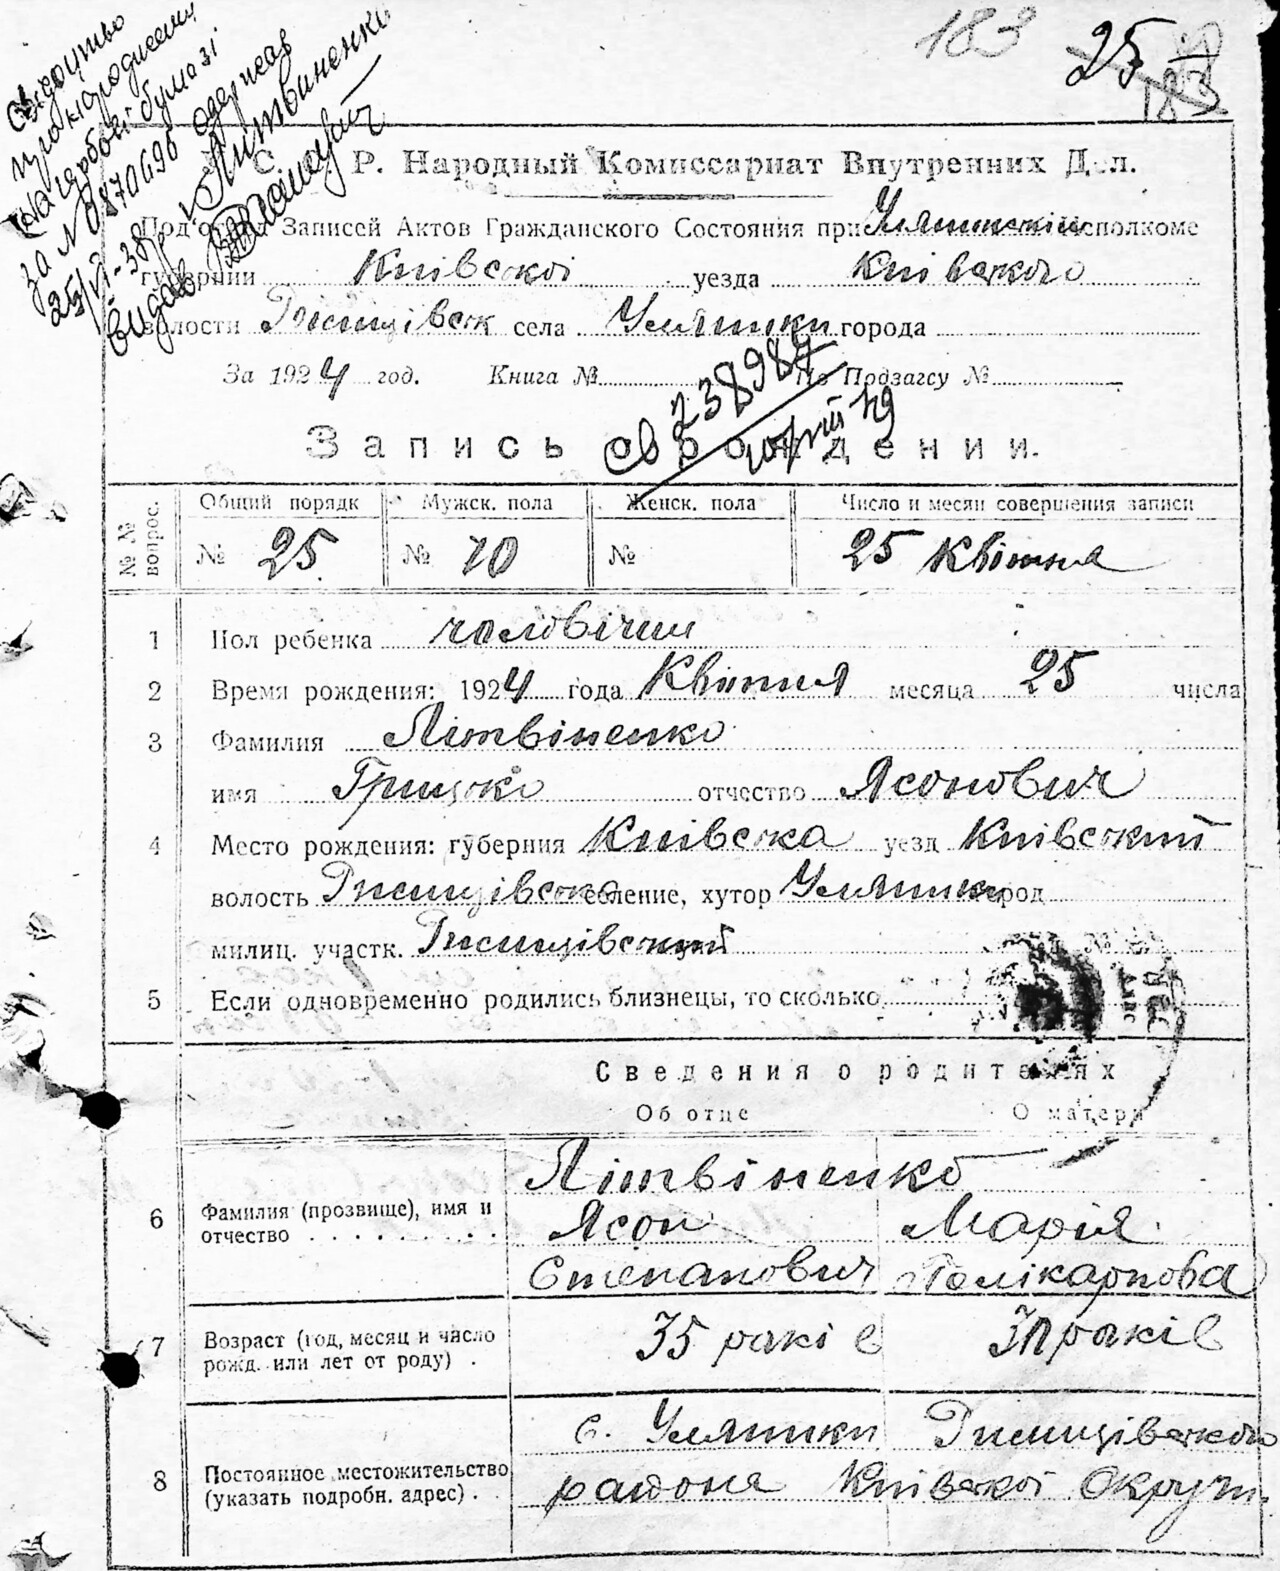 183 25 183
свідоцтво
про народження
на гербовій бумазі
за № 0870696 одержав
25/VI-38р. Литвиненко
видав
С. Р. Народный Комиссариат Внутренних Дел.
Под'отдел Записей Актов Гражданского Состояния при Уляниківськім исполкоме
губернии Київської уезда Київського
волости Ржищівськ села Уляники города
За 1924 год. Книга № По Подзагсу №
св 238987
Запись о рождении.
№ № вопрос. Общий порядк Мужск. пола Женск. пола Число и месяц совершения записи
№ 25 № 10 № 25 Квітня
1 Пол ребенка чоловічий
2 Время рождения: 1924 года Квітня месяца 25 числа
3 Фамилия Літвіненко
имя Грицько отчество Ясонович
4 Место рождения: губерния Київська уезд Київський
волость Ржищівська селение, хутор Уляники город
милиц. участк. Ржищівський
5 Если одновременно родились близнецы, то сколько
Сведения о родителях
Об отце О матери
Літвіненко
6 Фамилия (прозвище), имя и отчество . . . . . . . . . Ясон Марія
Степанович Полікарпова
7 Возраст (год, месяц и число рожд. или лет от роду) . 35 років 30 років
8 Постоянное местожительство (указать подробн. адрес) . с. Уляники Ржищівського
района Київської Округи.